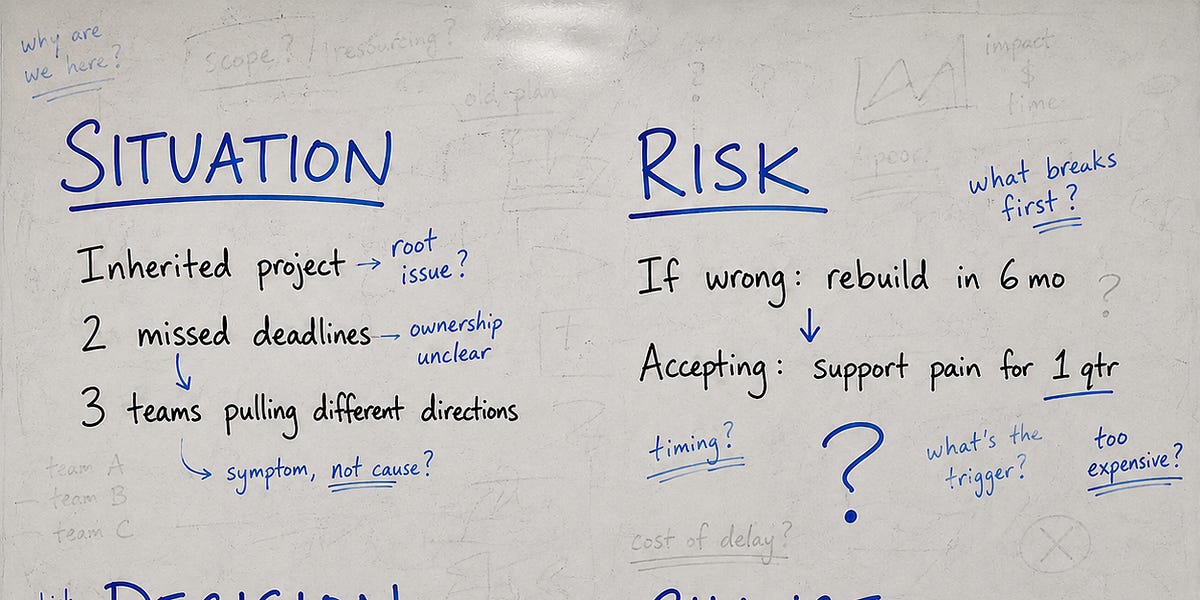 why are
we here?
scope? / resourcing?
old plan
?
impact
$
time
SITUATION
Inherited project → root
issue?
2 missed deadlines → ownership
unclear
3 teams pulling different directions
symptom, not cause?
team A
team B
team C
RISK
poor
what breaks
first?
If wrong: rebuild in 6 mo ?
Accepting: support pain for 1 qtr
timing?
?
what's the
trigger?
too
expensive?
cost of delay?
DECISION